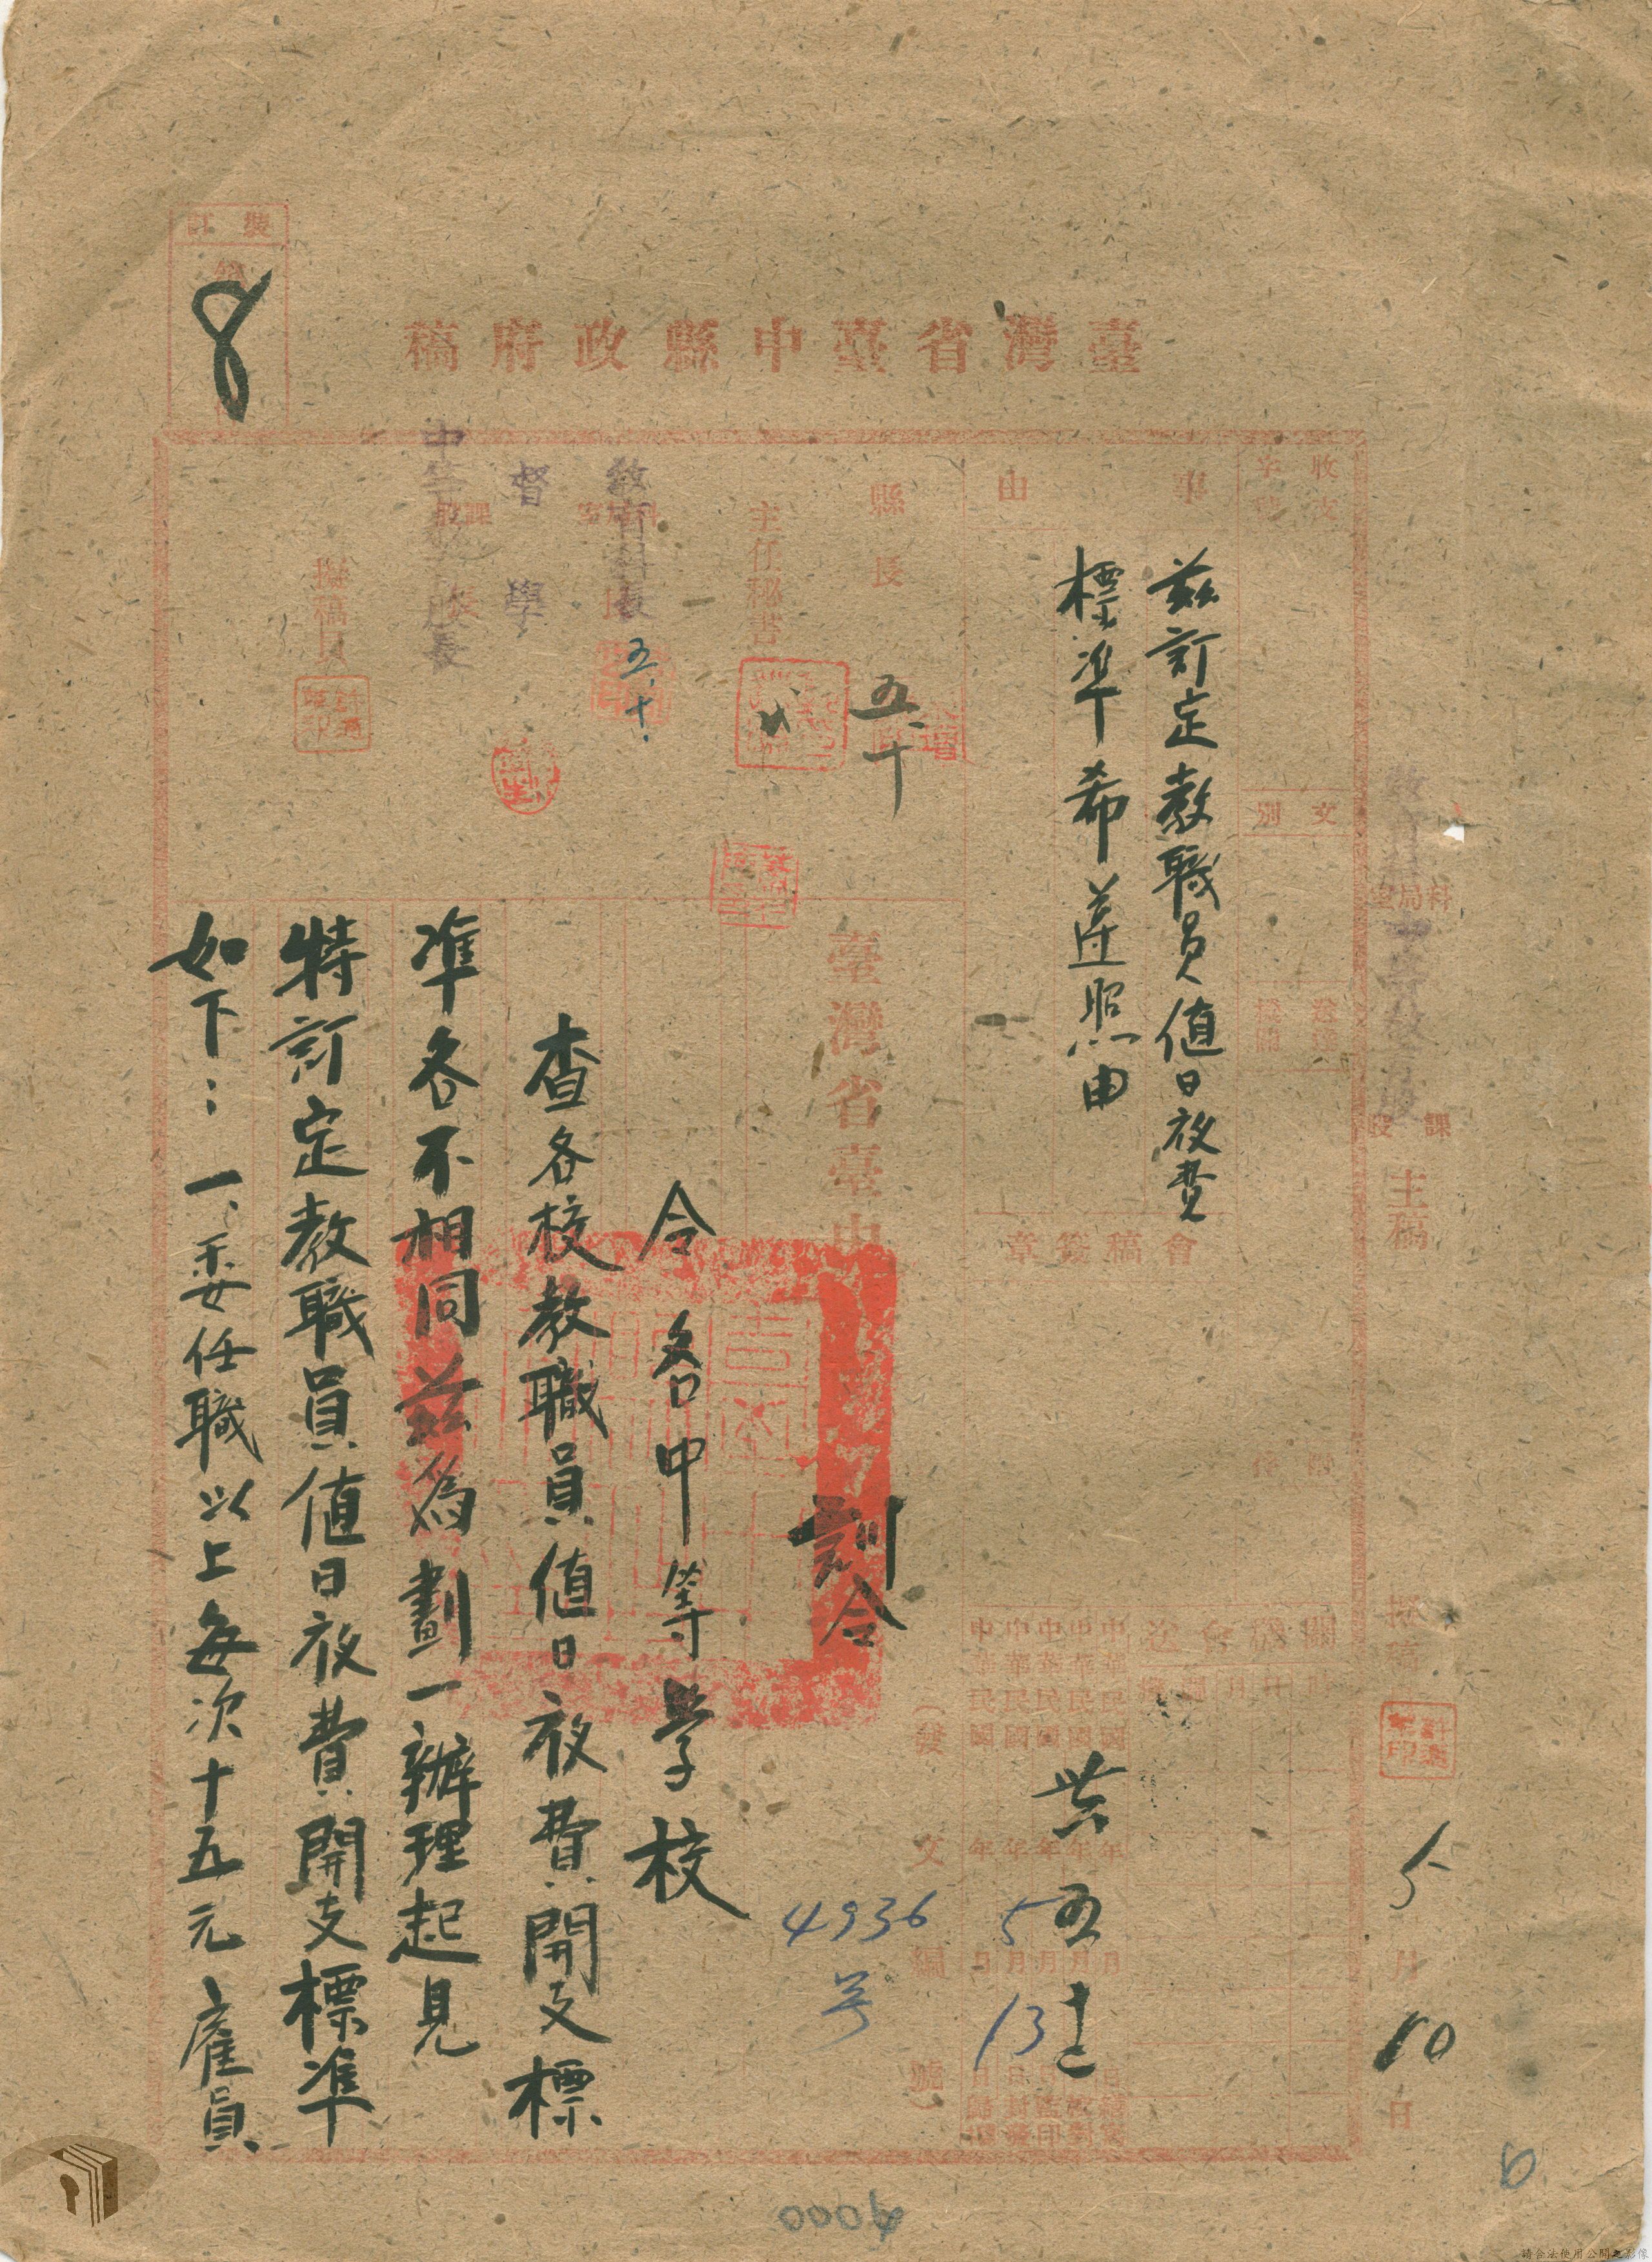 臺灣省臺中縣政府稿
裝訂
8
科局室
課股
主稿
擬稿
5月10日
收文
字號
文別
送達機關
附件
事由
茲訂定教職員值日夜費
標準希遵照由
會稿簽章
關機會送
縣長
五、十
主任秘書
教育科長
五、十、
督學
中等教育股長
擬稿員
中華民國 年 月 日
卅五 五 十三
5 13
發文編號
4936号
臺灣省臺中
訓令
令各中等學校
查各校教職員值日夜費開支標
準各不相同茲為劃一辦理起見
特訂定教職員值日夜費開支標準
如下：一、委任職以上每次十五元雇員
請合法使用公開之影像